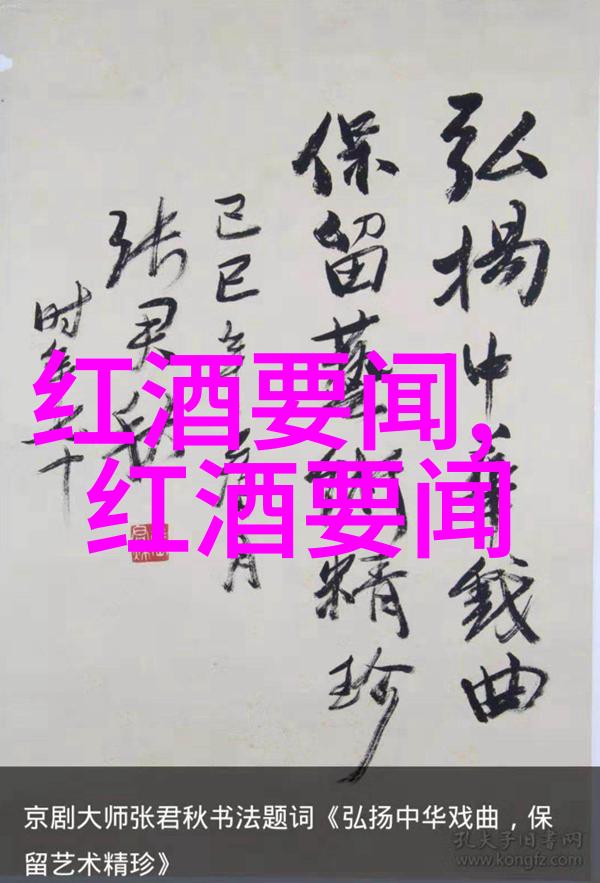 弘揚中华戲曲
保留藝術精珍
己巳
张君秋
时年七十
红酒要闻,
红酒要闻
京剧大师张君秋书法题词《弘扬中华戏曲，保
留艺术精珍》
孔夫子旧书网
www.kongfz.com